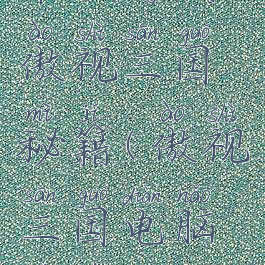 ào shì sān guó
傲视三国
mì jí ào shì
秘籍(傲视
sān guó diàn nǎo
三国电脑